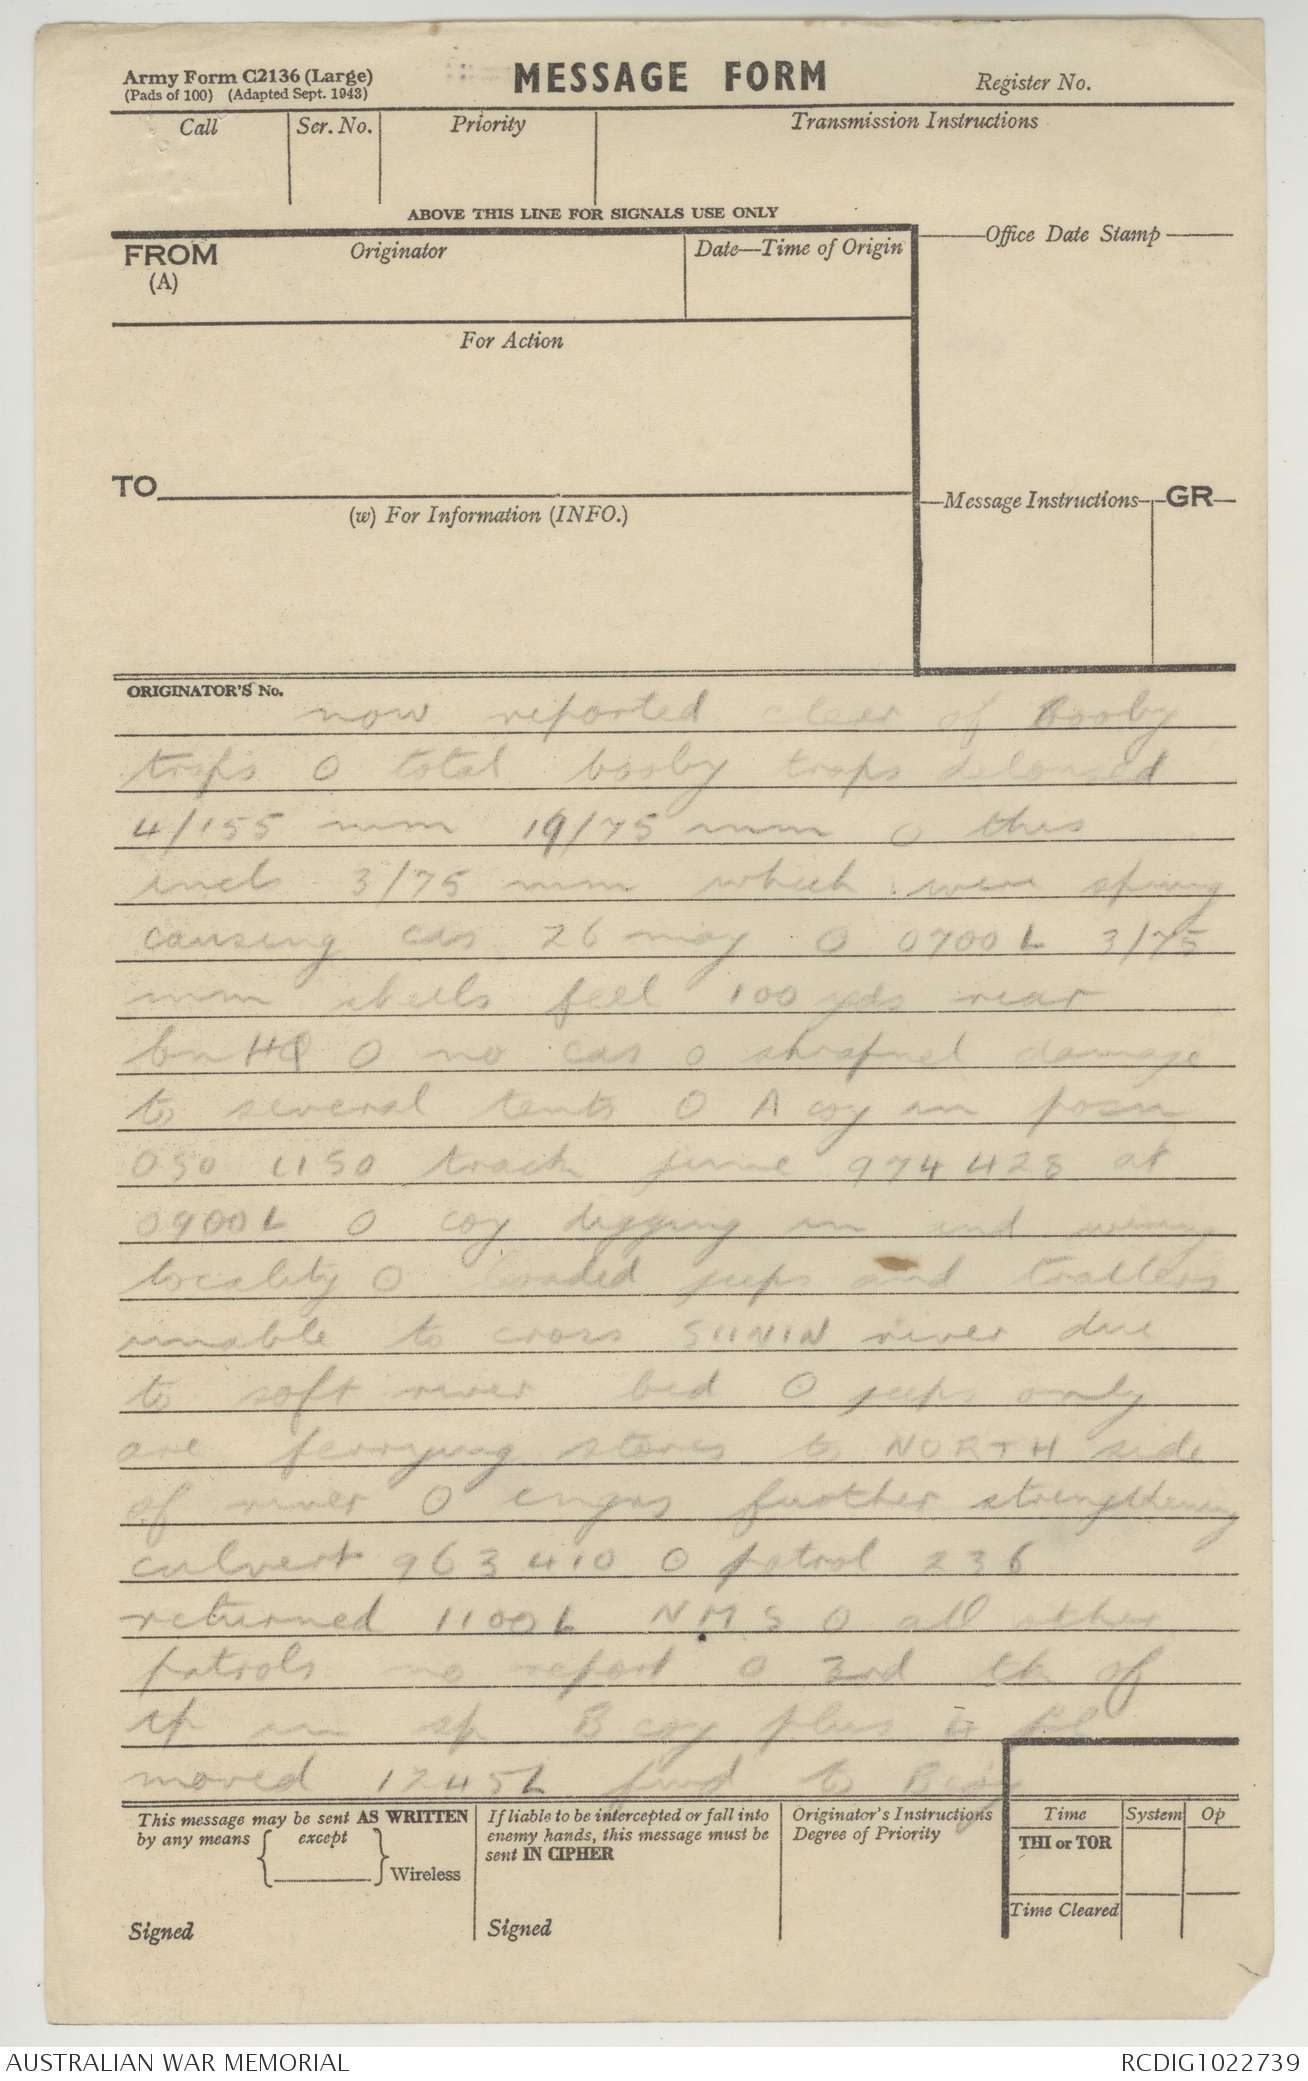 Army Form C2136 (Large)
(Pads of 100) (Adapted Sept. 1943)
MESSAGE FORM
Register No.
Call
Ser. No.
Priority
Transmission Instructions
ABOVE THIS LINE FOR SIGNALS USE ONLY
FROM
(A)
Originator
Date—Time of Origin
Office Date Stamp
For Action
TO
(w) For Information (INFO.)
Message Instructions
GR
ORIGINATOR'S No.
now reported clear of Booby
traps O total booby traps deloused
4/155 mm 19/75 mm O this
incls 3/75 mm which were sprung
causing cas 26 may O 0700L 3/75
mm shells fell 100 yds rear
bn HQ O no cas O shrapnel damage
to several tents O A coy in posn
050 1150 track junc 974428 at
0900L O coy digging in and wiring
locality O loaded jeeps and trailers
unable to cross SIININ river due
to soft river bed O jeeps only
are ferrying stores to NORTH side
of river O engrs further strengthening
culvert 963410 O patrol 236
returned 1100L NMS O all other
patrols no report O 3rd tk of
tp in sp B coy plus pl
moved 1245L fwd to B coy
This message may be sent AS WRITTEN
by any means { except } Wireless
Signed
If liable to be intercepted or fall into
enemy hands, this message must be
sent IN CIPHER
Signed
Originator's Instructions
Degree of Priority
Time
System
Op
THI or TOR
Time Cleared
AUSTRALIAN WAR MEMORIAL
RCDIG1022739